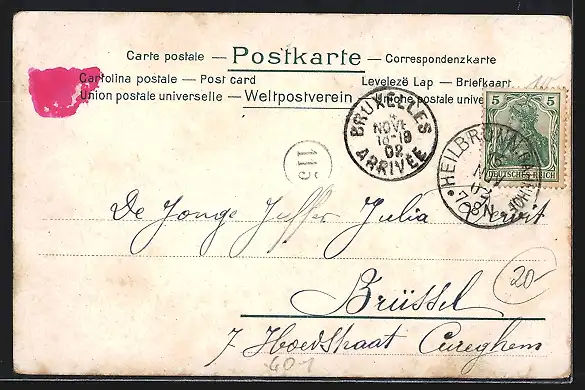 Carte postale — Postkarte — Correspondenzkarte
Cartolina postale — Post card Levelezö Lap — Briefkaart
Union postale universelle — Weltpostverein
BRUXELLES
NOVE
18-19
02
ARRIVÉE
5 5
DEUTSCHES REICH
HEILBRONN
NOV
02
115
De Jonge Juffer Julia
20-
Brüssel
7 Hoedstraat Cureghem